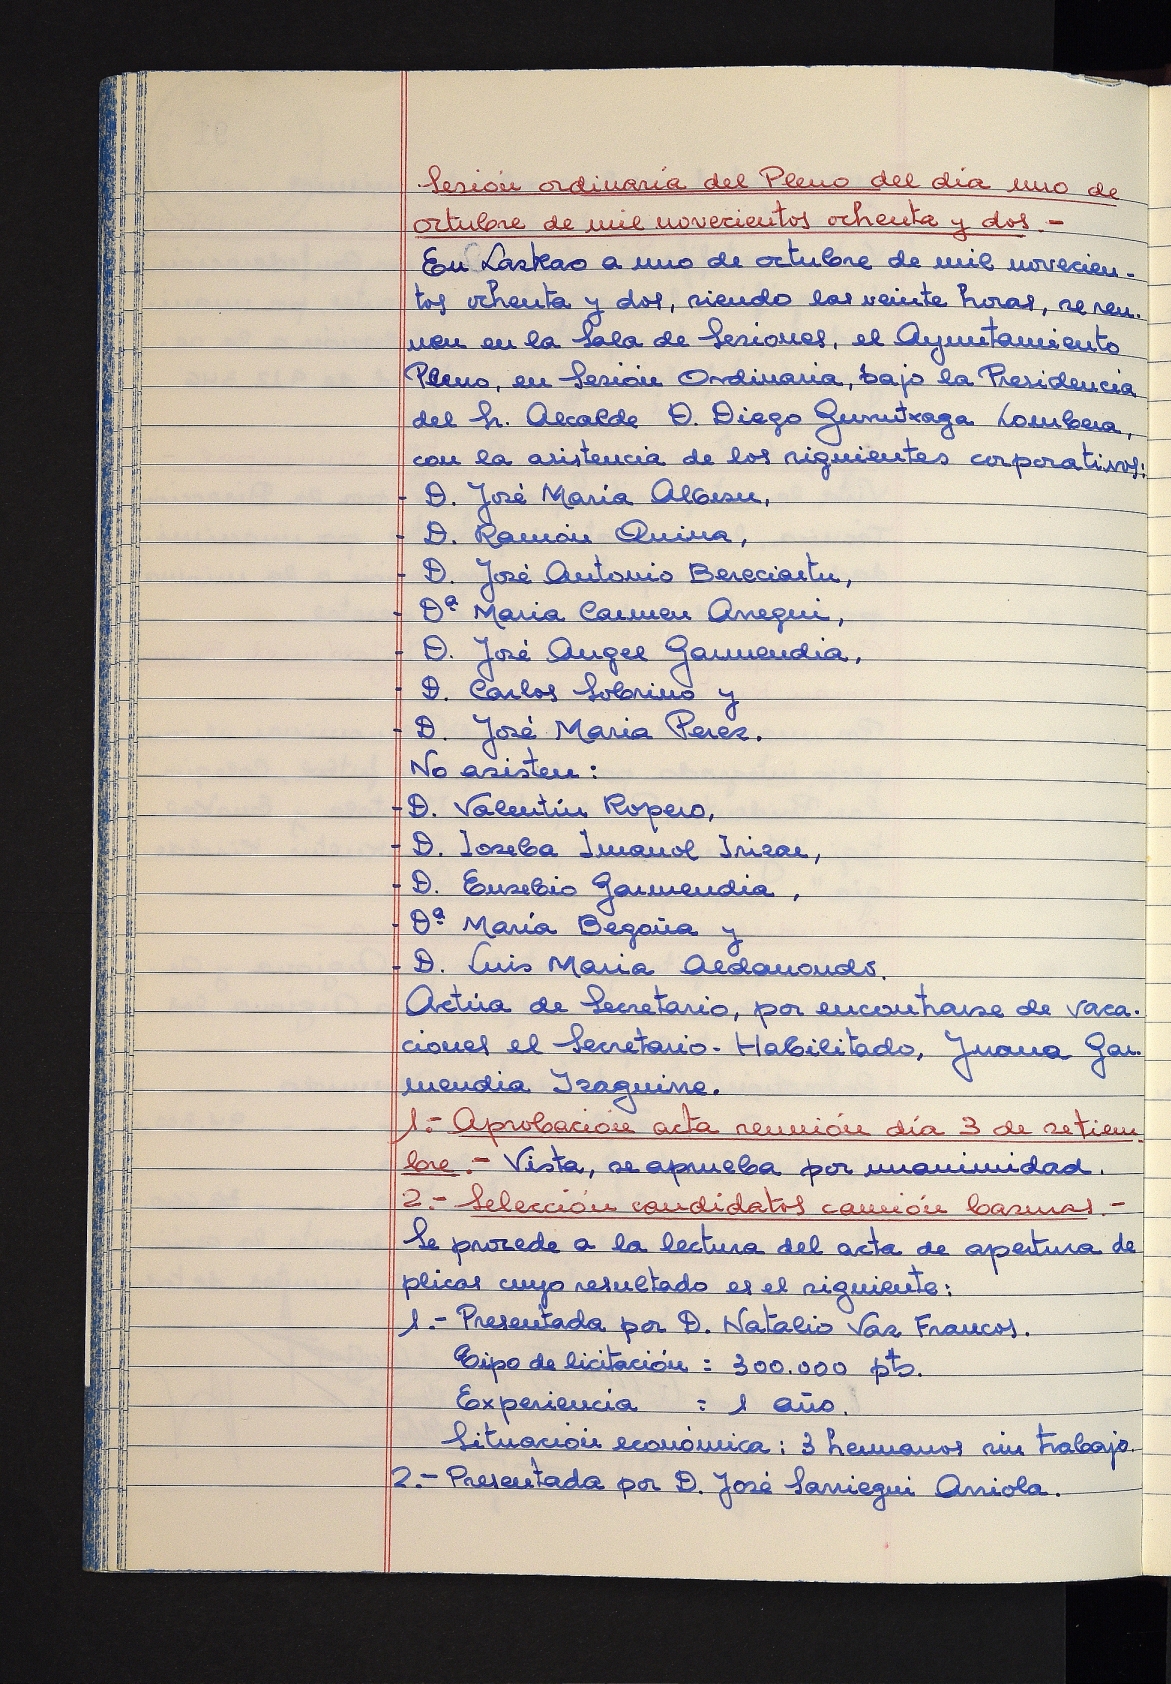 Sesión ordinaria del Pleno del día uno de
octubre de mil novecientos ochenta y dos.-
En Lazkao a uno de octubre de mil novecien-
tos ochenta y dos, siendo las veinte horas, se reu-
nen en la Sala de Sesiones, el Ayuntamiento
Pleno, en Sesión Ordinaria, bajo la Presidencia
del Sr. Alcalde D. Diego Gurrutxaga Lombera,
con la asistencia de los siguientes corporativos:
- D. José Maria Albisu,
- D. Ramón Quina,
- D. José Antonio Bereciartu,
- Dª Maria Carmen Arregui,
- D. José Angel Garmendia,
- D. Carlos Sobrino y
- D. José Maria Perez.
No asisten:
- D. Valentín Ropero,
- D. Ioseba Imanol Irizar,
- D. Eusebio Garmendia,
- Dª María Begoña y
- D. Luis Maria Aldanondo.
Actúa de Secretario, por encontrarse de vaca-
ciones el Secretario-Habilitado, Juana Gar-
mendia Izaguirre.
1.- Aprobación acta reunión día 3 de setiem-
bre.- Vista, se aprueba por unanimidad.
2.- Selección candidatos camión basuras.-
Se procede a la lectura del acta de apertura de
plicas cuyo resultado es el siguiente:
1.- Presentada por D. Natalio Vaz Francos.
Tipo de licitación : 300.000 pts.
Experiencia : 1 año.
Situación económica : 3 hermanos sin trabajo.
2.- Presentada por D. José Sarriegui Arriola.